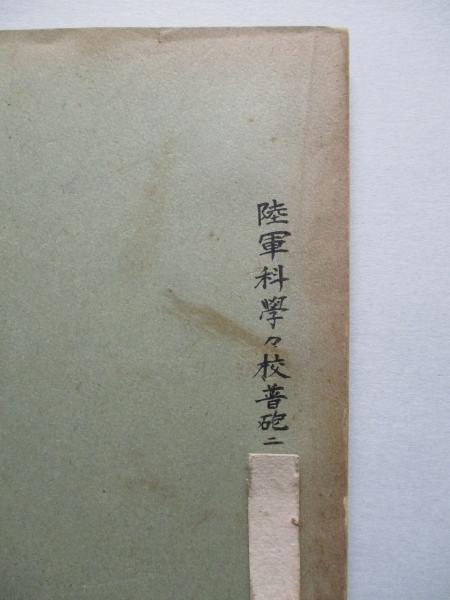 陸軍科學々校普砲二